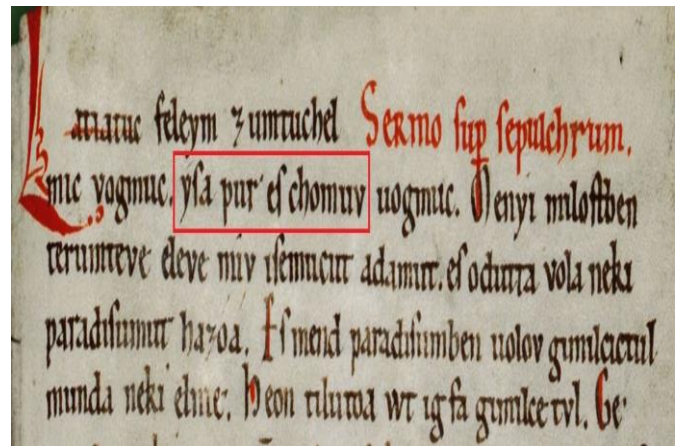 Latiatuc feleym ⁊ zumtuchel Sermo sup sepulchrum.
mic vogmuc. ysa pur eſ chomuv uogmuc. Menyi miloſtben
terumteve eleve miv iſemucut adamut. eſ odutta vola neki
paradiſumut hazoa. Eſ mend paradiſumben uolov gimilcictul
munda neki elnie. Heon tilutoa wt ig fa gimilce tvl. Ge